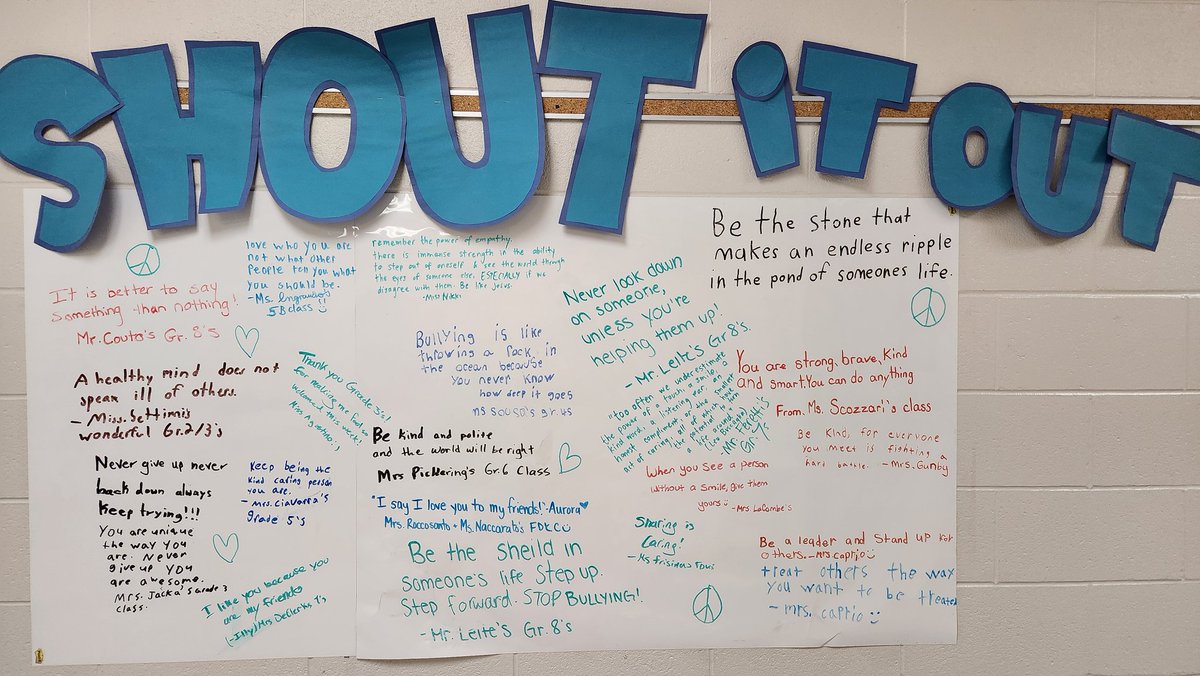 SHOUT iT OUT
love who you are
not what other
People tell you what
you should be.
5B class
It is better to say
Something than nothing!
Mr. Couto's Gr. 8's
A healthy mind does not
speak ill of others.
- Miss. Settimi's
wonderful Gr.2/3's
Thank you Grade 5's!
for making me feel
welcomed this week!
Never give up never
back down always
Keep trying!!!
You are unique
the way you
are. Never
give up you
are awesome.
Mrs. Jacka's Grade 3
class.
Keep being the
kind caring person
you are.
- Mrs. Ciavarra's
grade 5's
I like you because you
are my friends
remember the power of empathy.
there is immense strength in the ability
to step out of oneself & see the world through
the eyes of someone else, ESPECIALLY if we
disagree with them. Be like Jesus.
- Miss Nikki
Bullying is like
throwing a rock in
the ocean because
you never know
how deep it goes
Be kind and polite
and the world will be right
Mrs Pickering's Gr.6 Class
"I say I love you to my friends!" - Aurora
Mrs. Roccosanto + Ms. Naccarato's FDKC
Be the sheild in
someone's life Step up.
Step forward. STOP BULLYING!
- Mr. Leite's Gr. 8's
Never look down
on someone,
unless you're
helping them up!
- Mr. Leite's Gr 8's.
"too often we underestimate
the power of a touch, a smile, a
kind word, a listening ear, an
honest compliment or the smallest
act of caring, all of which have
the potential to turn
a life around."
Gr 7's
When you see a person
without a smile, give them
yours - Mrs. LaCombe's
Sharing is
Caring!
Be the stone that
makes an endless ripple
in the pond of someones life.
You are strong, brave, Kind
and smart. You can do anything
From, Ms. Scozzari's class
Be Kind, for everyone
you meet is fighting a
hard battle. - Mrs. Gunby
Be a leader and Stand up for
others. - Mrs. Caprio
treat others the way
you want to be treated
- mrs. caprio